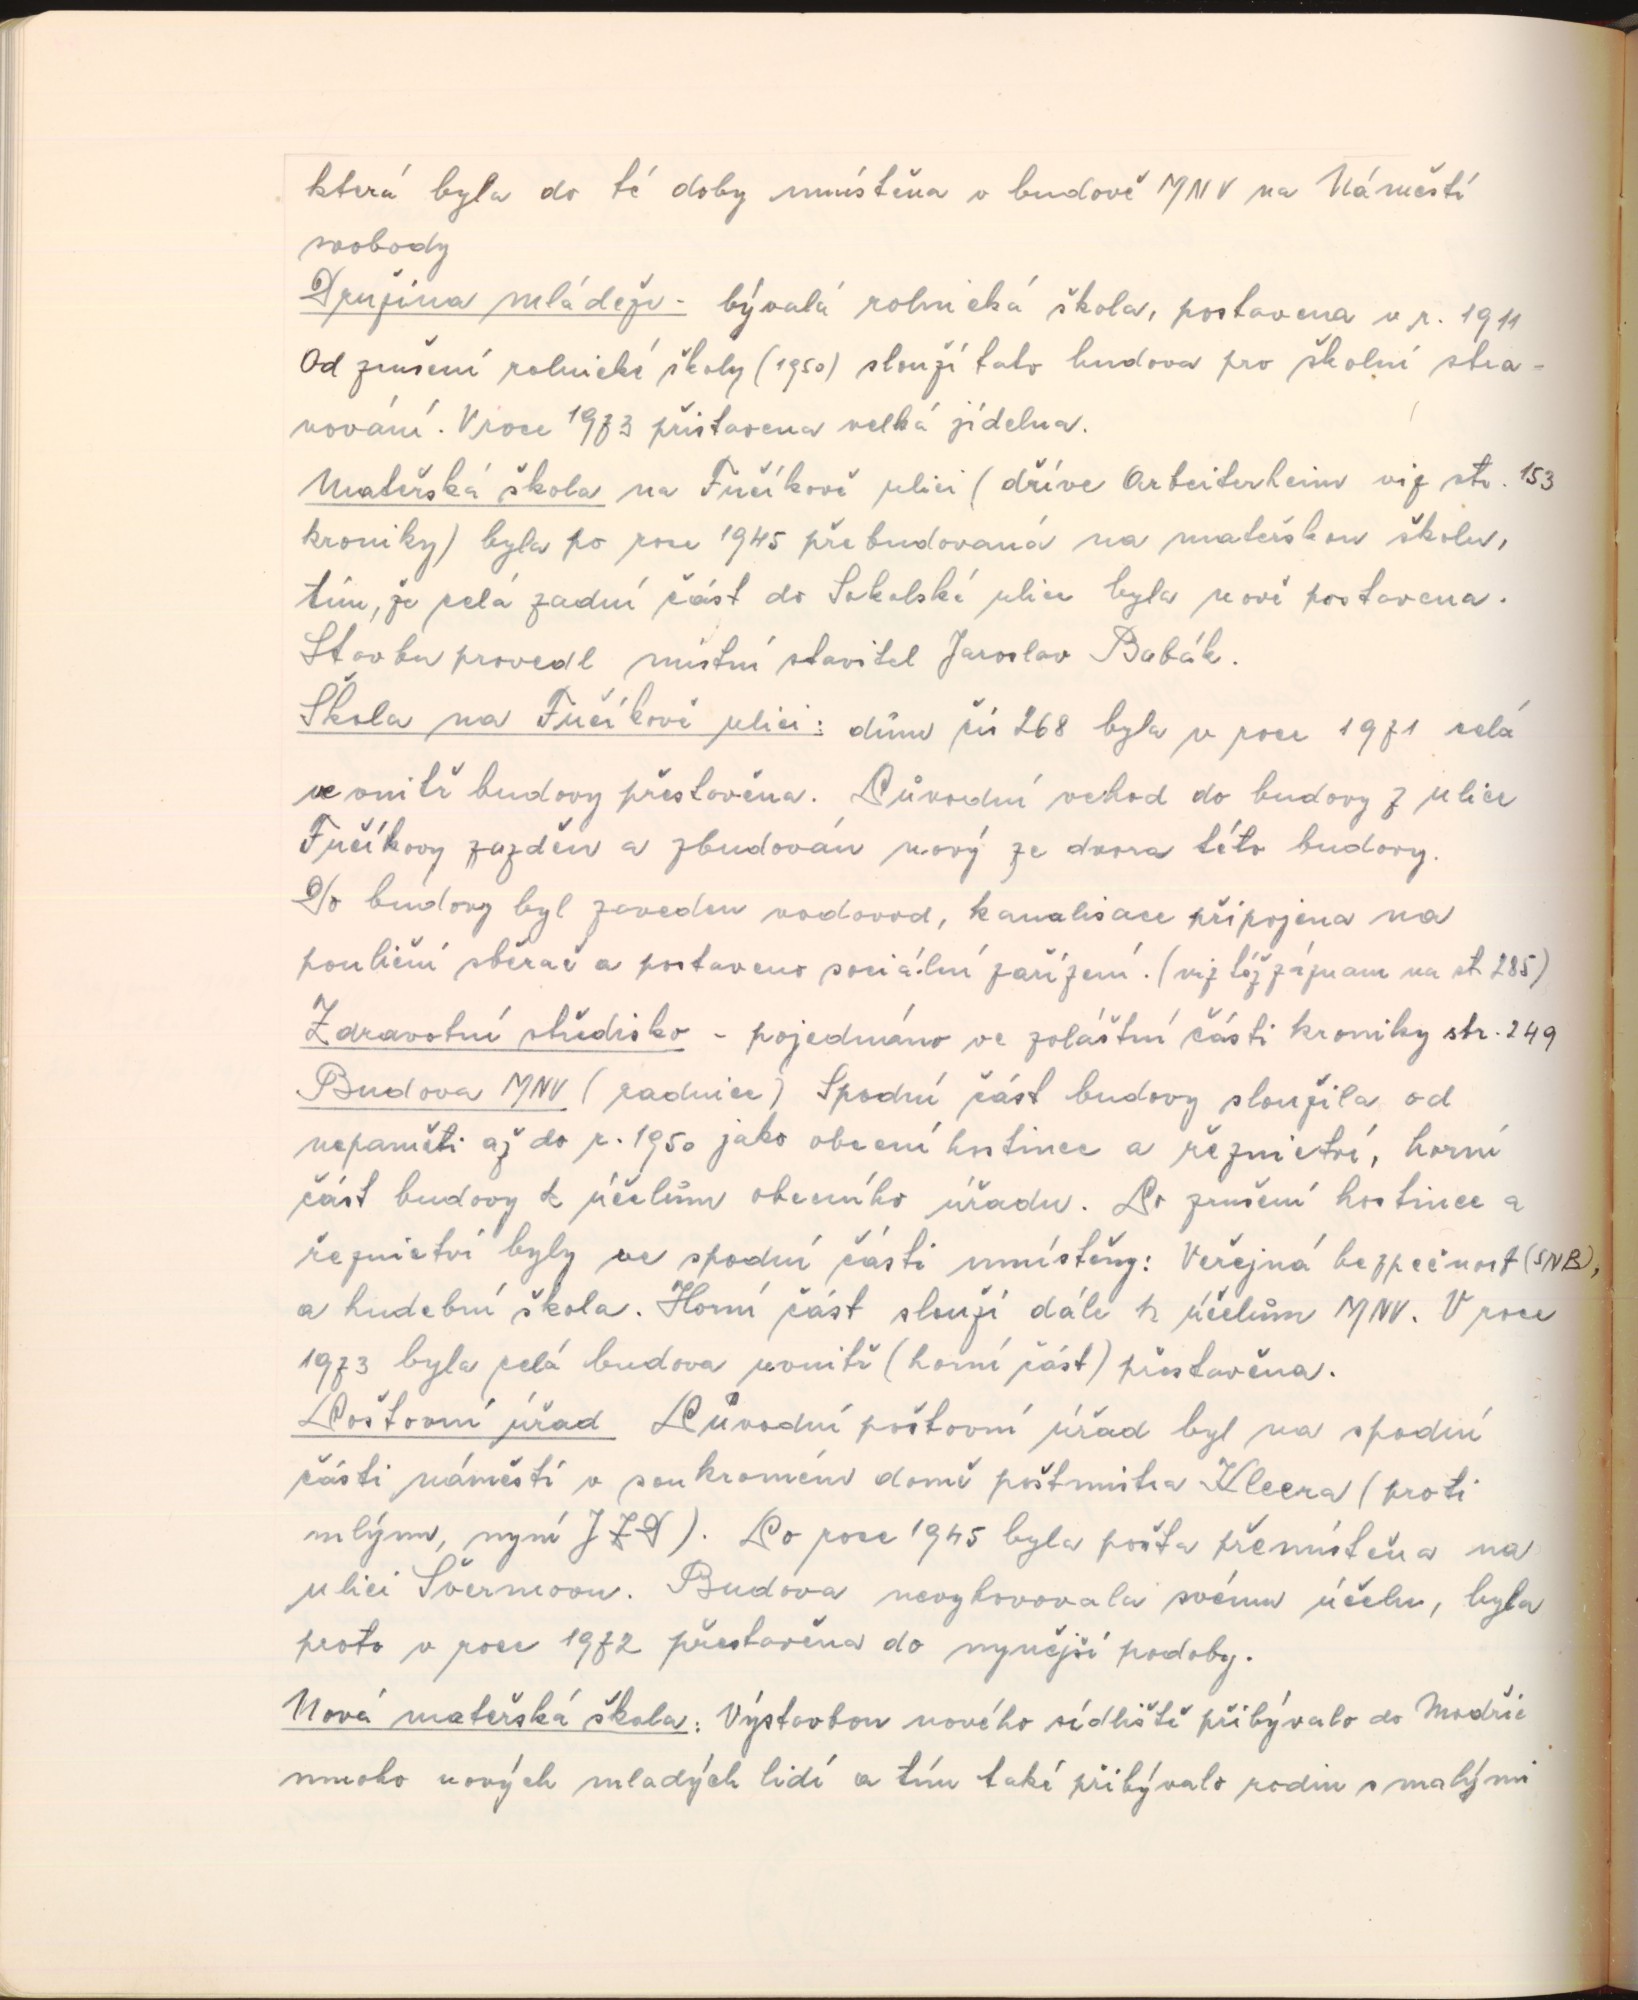 která byla do té doby umístěna v budově MNV na Náměstí
svobody
Družina mládeže - bývalá rolnická škola, postavena v r. 1911
Od zrušení rolnické školy (1950) slouží tato budova pro školní stra-
vování. V roce 1973 přistavena velká jídelna.
Mateřská škola na Fučíkově ulici (dříve Arbeiterheim viz str. 153
kroniky) byla po roce 1945 přebudovaná na mateřskou školu,
tím, že celá zadní část do Sokolské ulice byla nově postavena.
Stavbu provedl místní stavitel Jaroslav Babák.
Škola na Fučíkově ulici: dům čís 268 byla v roce 1971 celá
ve vnitř budovy přestavěna. Původní vchod do budovy z ulice
Fučíkovy zazděn a zbudován nový ze dvora této budovy.
Do budovy byl zaveden vodovod, kanalisace připojena na
pouliční sběrač a postaveno sociální zařízení. (viz též záznam na st 285)
Zdravotní středisko - pojednáno ve zvláštní části kroniky str. 249
Budova MNV (radnice) Spodní část budovy sloužila od
nepaměti až do r. 1950 jako obecní hostinec a řeznictví, horní
část budovy k účelům obecního úřadu. Po zrušení hostince a
řeznictví byly ve spodní části umístěny: Veřejná bezpečnost (SNB),
a hudební škola. Horní část slouží dále k účelům MNV. V roce
1973 byla celá budova uvnitř (horní část) přestavěna.
Poštovní úřad Původní poštovní úřad byl na spodní
části náměstí v soukromém domě poštmistra Kleera (proti
mlýnu, nyní JZD). Po roce 1945 byla pošta přemístěna na
ulici Švermovu. Budova nevyhovovala svému účelu, byla
proto v roce 1972 přestavěna do nynější podoby.
Nová mateřská škola: Výstavbou nového sídliště přibývalo do Modřic
mnoho nových mladých lidí a tím také přibývalo rodin s malými